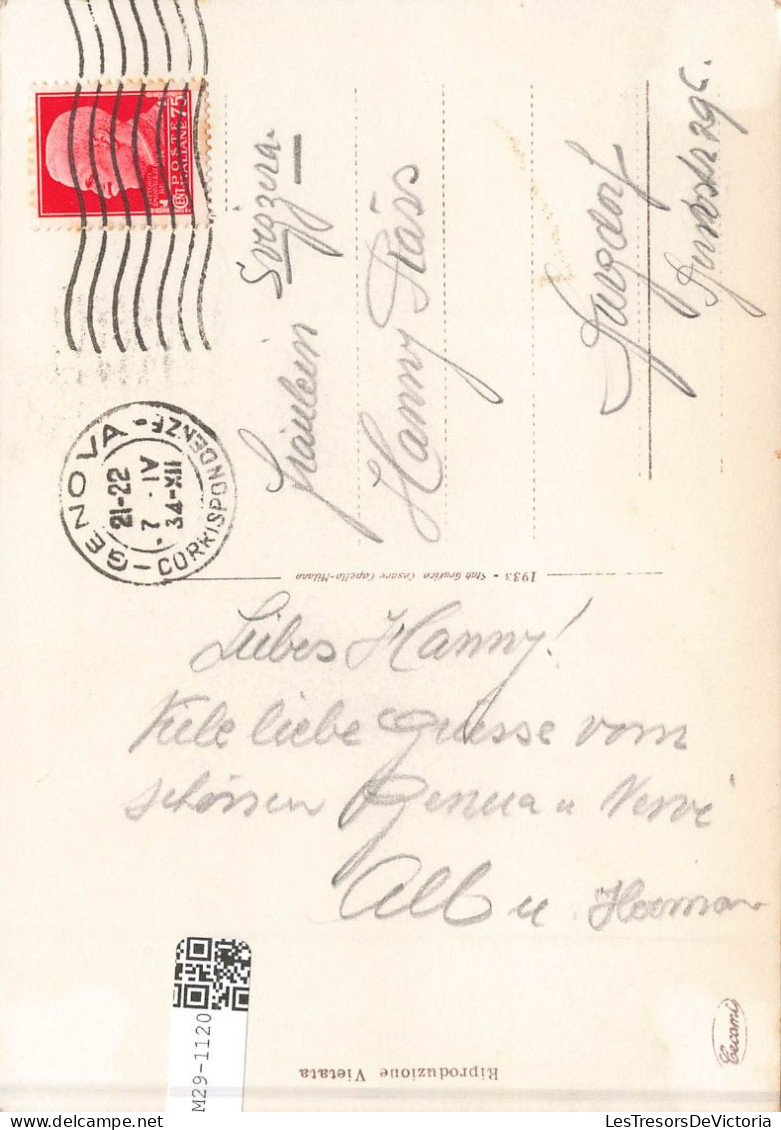 POSTE
ITALIANE
CENT 75
GENOVA
21-22
7 · IV
34-XII
CORRISPONDENZE
Svizzera.
Fräulein
Hanny Stäss
Burgdorf
29c.
1933 - Stab Grafico Cesare Capello-Milano
Liebes Hanny!
Viele liebe Grüsse vom
schönen Genua u Nervi
Alb u Herman
M29-1120
Cecami
Riproduzione Vietata
LesTresorsDeVictoria.com